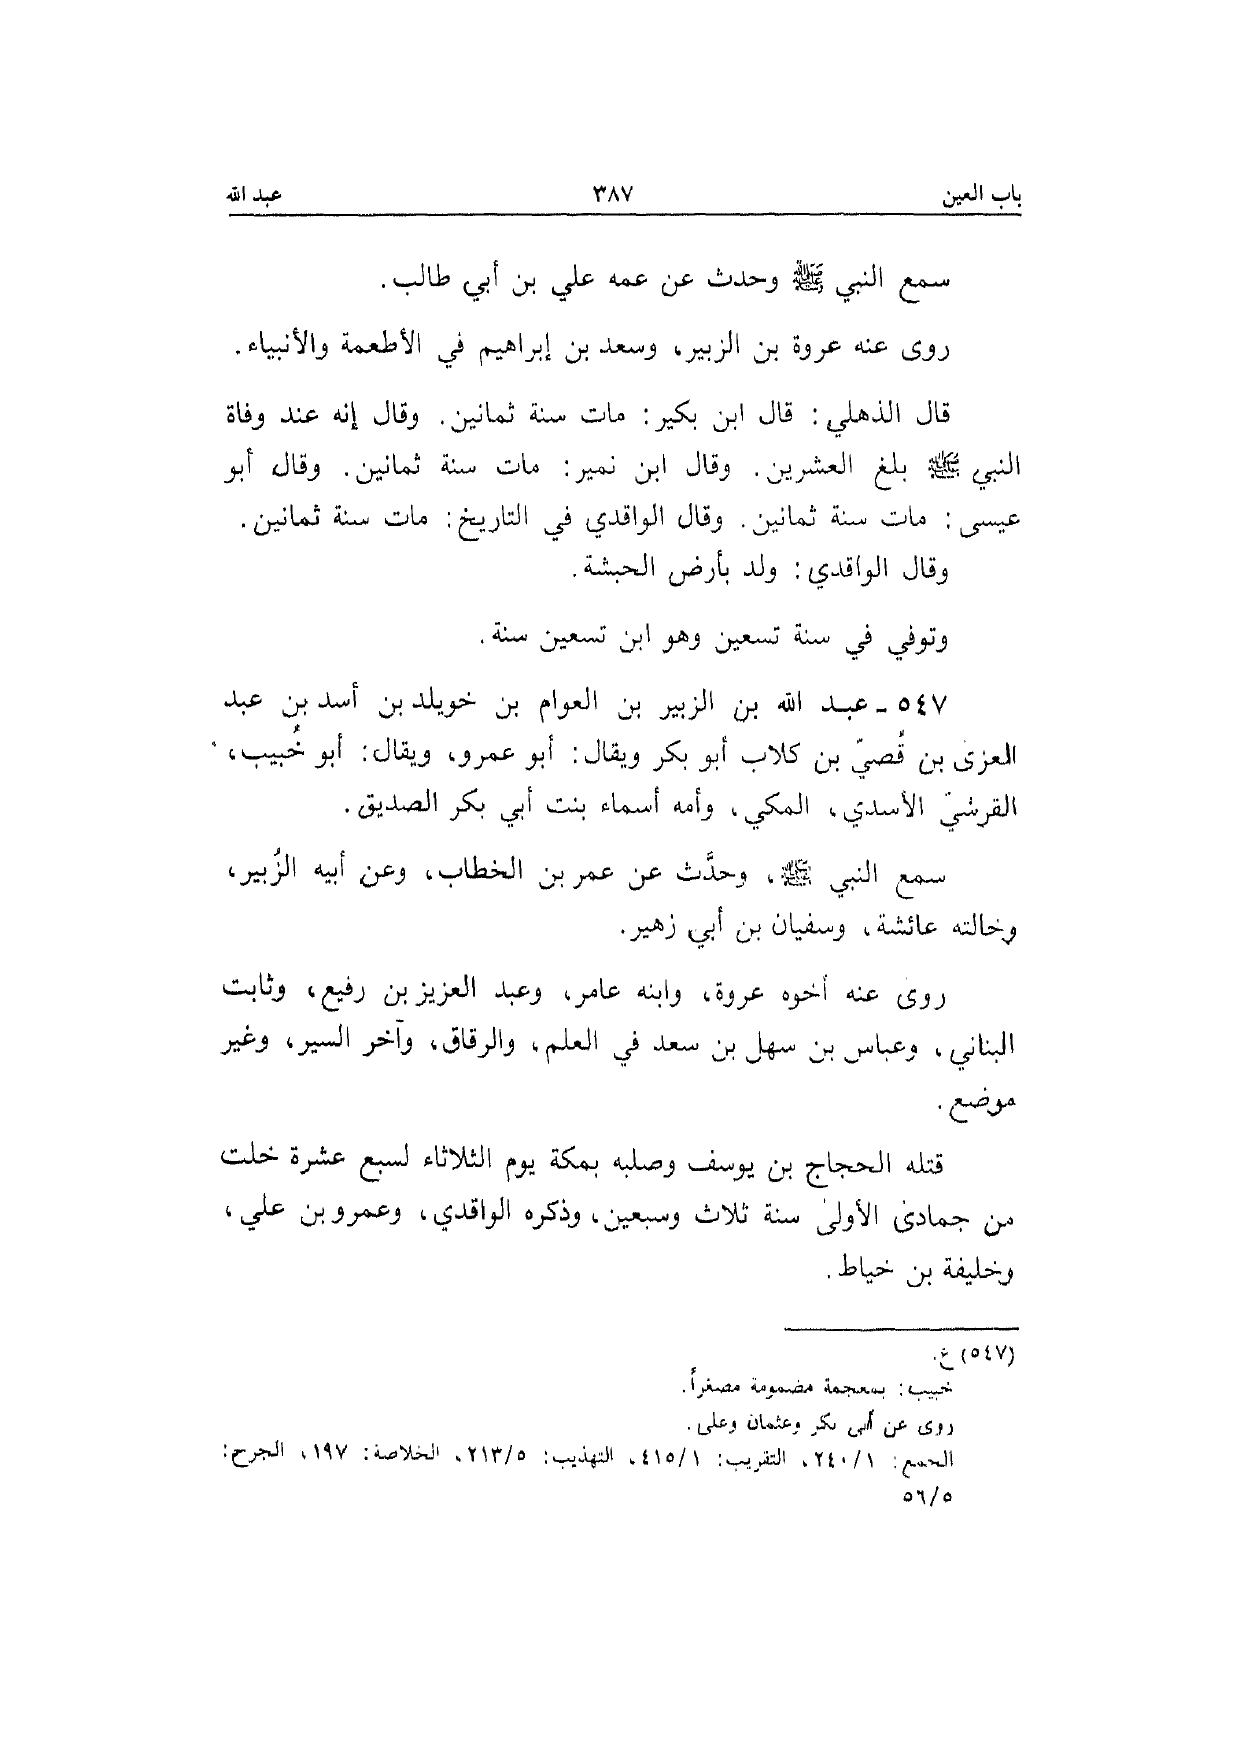 باب العين ٣٨٧ عبد الله
سمع النبي ﷺ وحدث عن عمه علي بن أبي طالب.
روى عنه عروة بن الزبير، وسعد بن إبراهيم في الأطعمة والأنبياء.
قال الذهلي: قال ابن بكير: مات سنة ثمانين. وقال إنه عند وفاة
النبي ﷺ بلغ العشرين. وقال ابن نمير: مات سنة ثمانين. وقال أبو
عيسى: مات سنة ثمانين. وقال الواقدي في التاريخ: مات سنة ثمانين.
وقال الواقدي: ولد بأرض الحبشة.
وتوفي في سنة تسعين وهو ابن تسعين سنة.
٥٤٧ - عبد الله بن الزبير بن العوام بن خويلد بن أسد بن عبد
العزى بن قُصيّ بن كلاب أبو بكر ويقال: أبو عمرو، ويقال: أبو خُبيب،
القرشيّ الأسدي، المكي، وأمه أسماء بنت أبي بكر الصديق.
سمع النبي ﷺ، وحدَّث عن عمر بن الخطاب، وعن أبيه الزُبير،
وخالته عائشة، وسفيان بن أبي زهير.
روى عنه أخوه عروة، وابنه عامر، وعبد العزيز بن رفيع، وثابت
البناني، وعباس بن سهل بن سعد في العلم، والرقاق، وآخر السير، وغير
موضع.
قتله الحجاج بن يوسف وصلبه بمكة يوم الثلاثاء لسبع عشرة خلت
من جمادى الأولى سنة ثلاث وسبعين، وذكره الواقدي، وعمرو بن علي،
وخليفة بن خياط.
(٥٤٧) ع.
خبيب: بمعجمة مضمومة مصغراً.
روى عن أبي بكر وعثمان وعلي.
الجمع: ٢٤٠/١، التقريب: ٤١٥/١، التهذيب: ٢١٣/٥، الخلاصة: ١٩٧، الجرح:
٥٦/٥